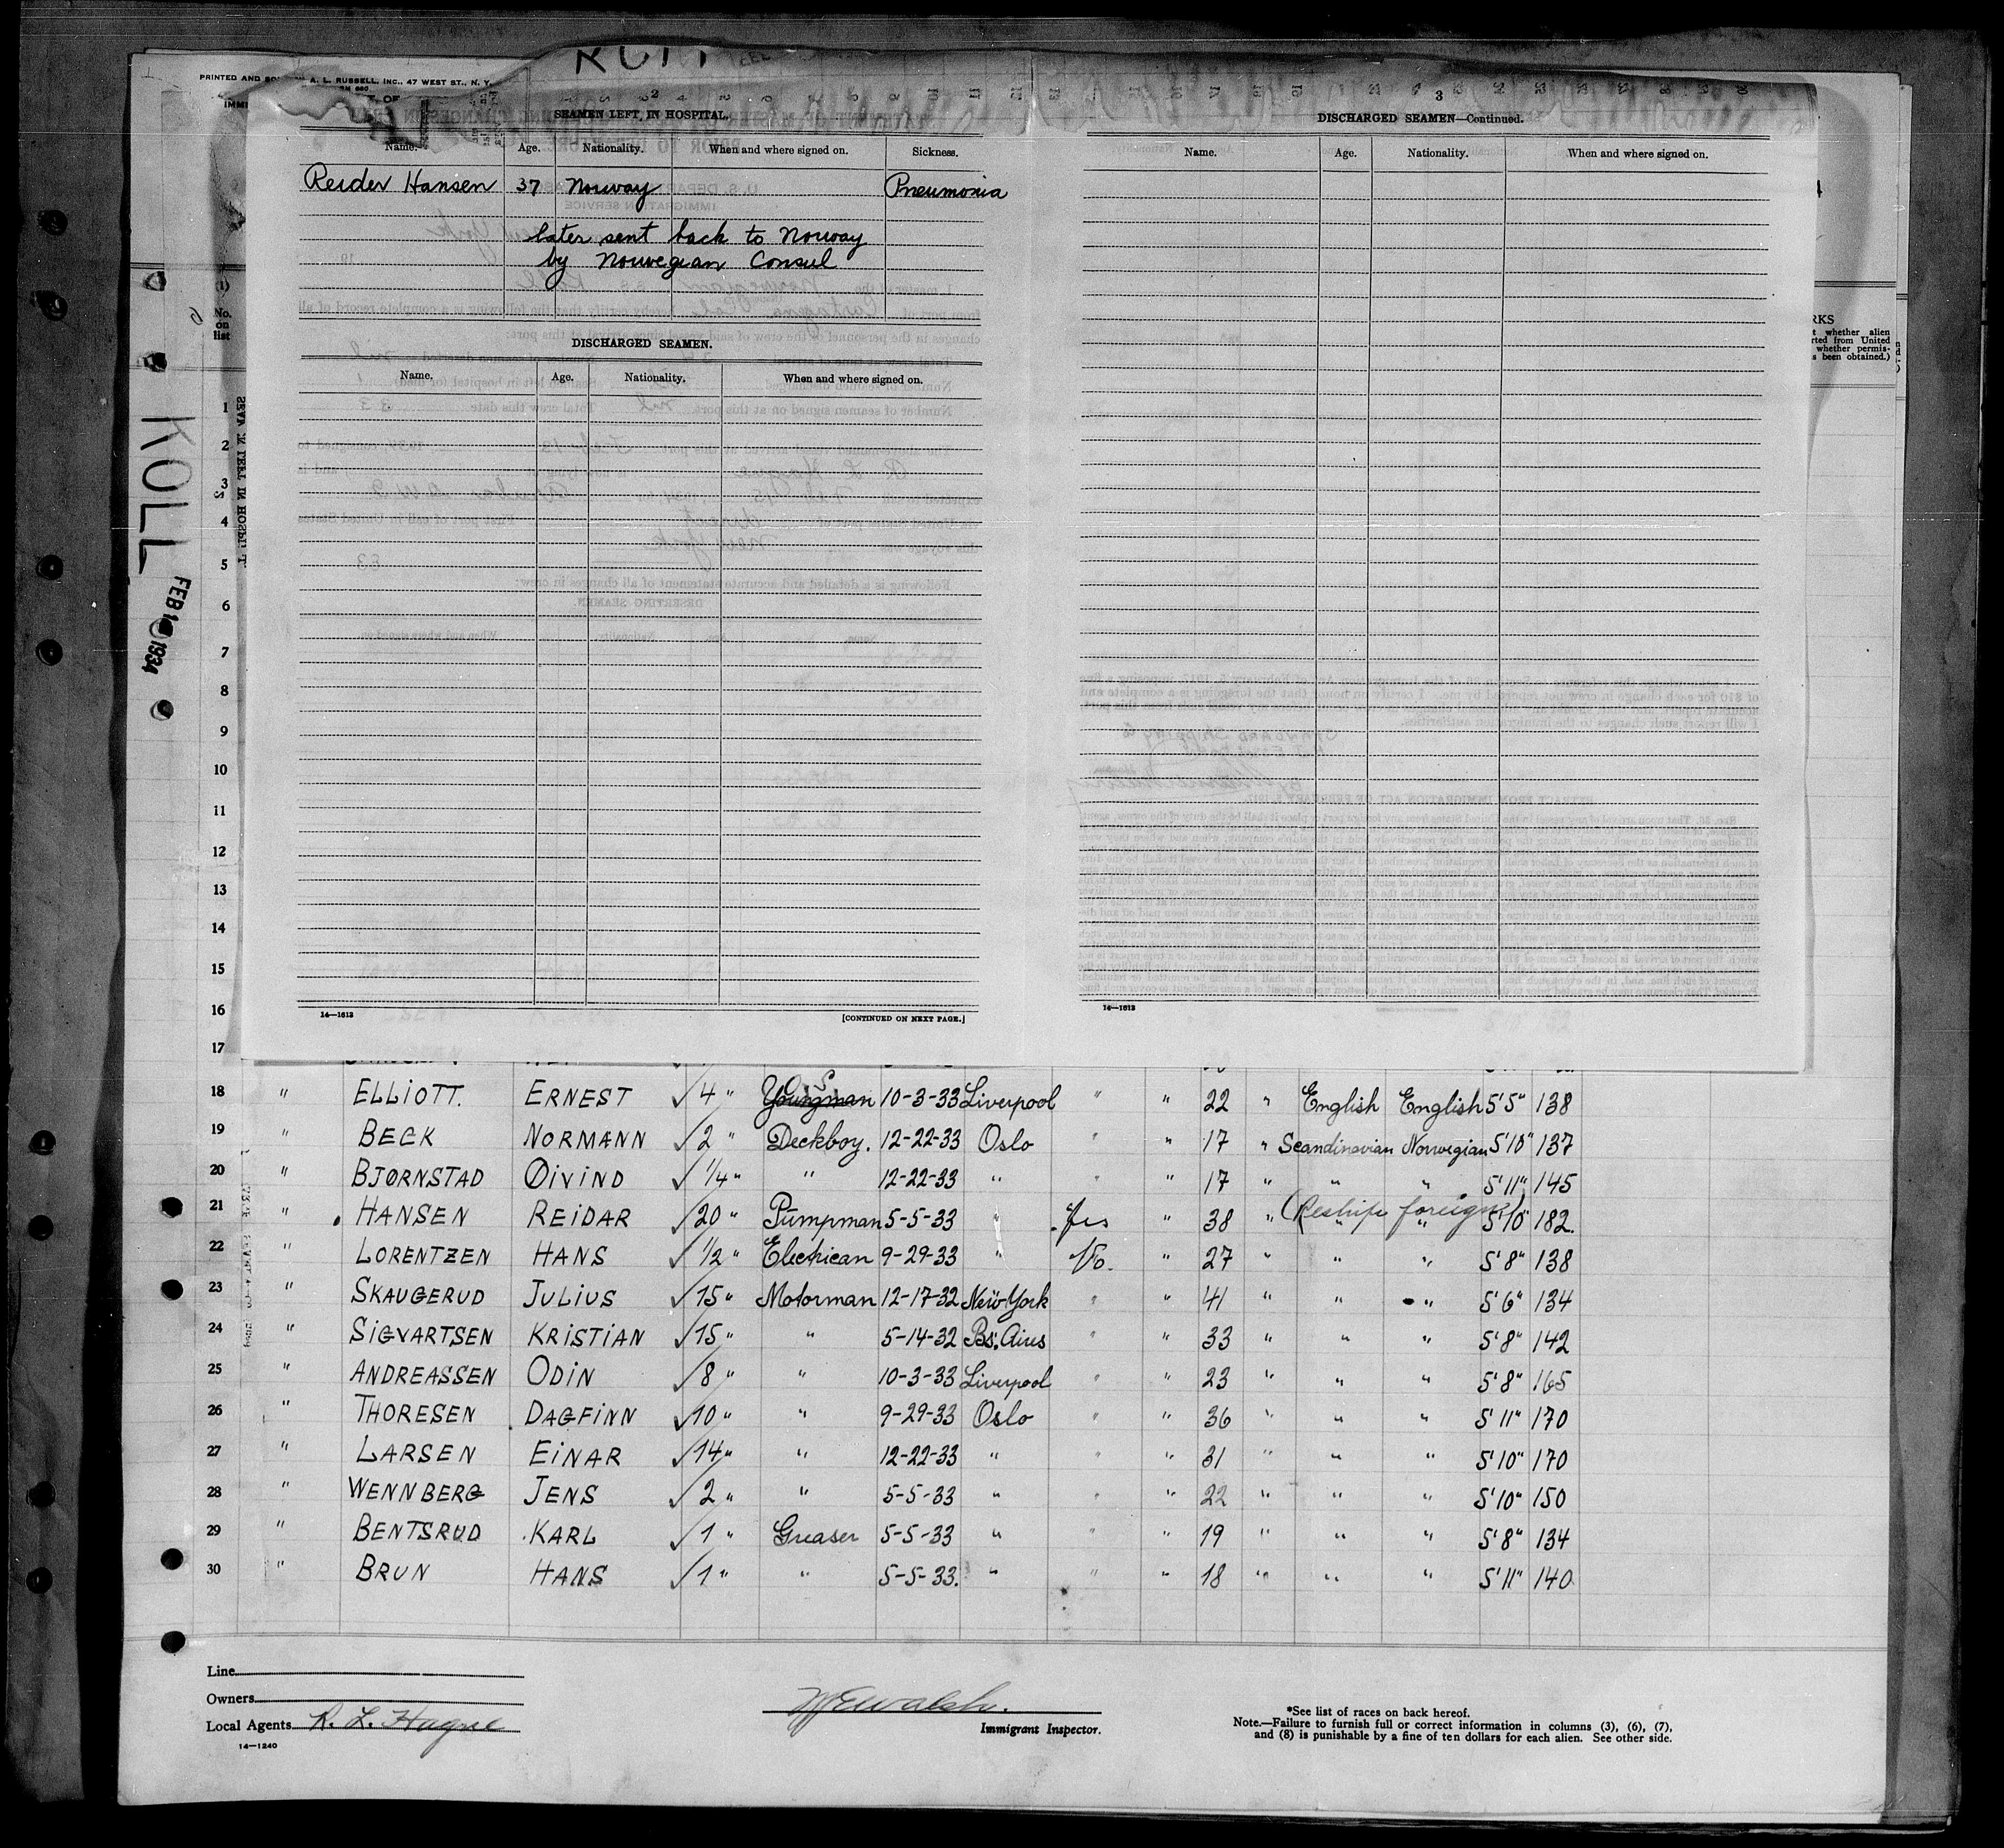 PRINTED AND A. L. RUSSELL, INC., 47 WEST ST., N. Y.
2
SEAMEN LEFT IN HOSPITAL.
Name. Age. Nationality. When and where signed on. Sickness.
Reider Hansen 37 Norway Pneumonia
later sent back to Norway
by Norwegian Consul
DISCHARGED SEAMEN.
Name. Age. Nationality. When and where signed on.
14—1613 [CONTINUED ON NEXT PAGE.]
3
DISCHARGED SEAMEN—Continued.
Name. Age. Nationality. When and where signed on.
14—1613
RKS
t whether alien
rted from United
whether permis-
s been obtained.)
KOLL
FEB 1 1934
No.
on
list
1
2
3
4
5
6
7
8
9
10
11
12
13
14
15
16
17
18 " ELLIOTT. ERNEST ✓ 4 " O S Youngman 10-3-33 Liverpool " " 22 " English English 5'5" 138
19 " BECK NORMANN ✓ 2 " Deckboy. 12-22-33 Oslo " " 17 " Scandinavian Norwegian 5'10" 137
20 " BJØRNSTAD ØIVIND ✓ 1/4 " " 12-22-33 " " " 17 " " " 5'11" 145
21 " HANSEN REIDAR ✓ 20 " Pumpman 5-5-33 " Yes " 38 " (Reship foreign) " " 5'10" 182.
22 " LORENTZEN HANS ✓ 1/2 " Electrican 9-29-33 " No. " 27 " " " 5'8" 138
23 " SKAUGERUD JULIUS ✓ 15 " Motorman 12-17-32 New York " " 41 " " " 5'6" 134
24 " SIGVARTSEN KRISTIAN ✓ 15 " " 5-14-32 Bs. Aires " " 33 " " " 5'8" 142
25 " ANDREASSEN ODIN ✓ 8 " " 10-3-33 Liverpool " " 23 " " " 5'8" 165
26 " THORESEN DAGFINN ✓ 10 " " 9-29-33 Oslo " " 36 " " " 5'11" 170
27 " LARSEN EINAR ✓ 14 " " 12-22-33 " " " 31 " " " 5'10" 170
28 " WENNBERG JENS ✓ 2 " " 5-5-33 " " " 22 " " " 5'10" 150
29 " BENTSRUD KARL ✓ 1 " Greaser 5-5-33 " " " 19 " " " 5'8" 134
30 " BRUN HANS ✓ 1 " " 5-5-33. " " " 18 " " " 5'11" 140
Line
Owners
Local Agents R. L. Hague
14—1240
Immigrant Inspector.
*See list of races on back hereof.
Note.—Failure to furnish full or correct information in columns (3), (6), (7),
and (8) is punishable by a fine of ten dollars for each alien. See other side.